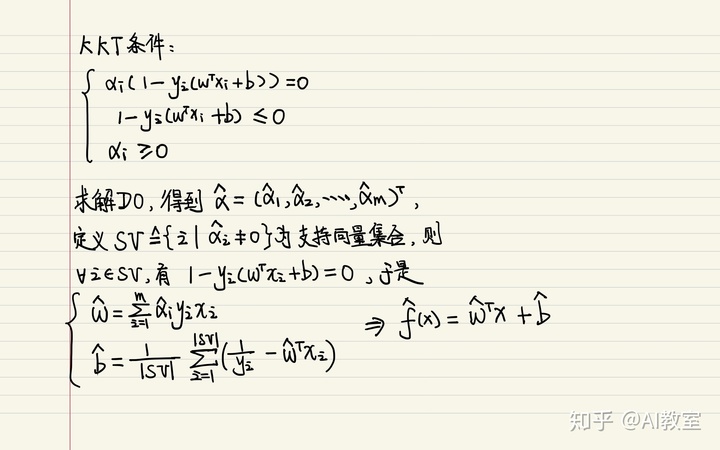 KKT条件:
αi(1-yi(wᵀxi+b))=0
1-yi(wᵀxi+b)≤0
αi≥0
求解DO,得到 α̂=(α̂1,α̂2,……,α̂m)ᵀ,
定义SV≜{i|α̂i≠0}为支持向量集合,则
∀i∈SV,有 1-yi(wᵀxi+b)=0,于是
ŵ=∑_{i=1}^{m}α̂iyixi ⇒ f̂(x)=ŵᵀx+b̂
b̂=1/|SV| ∑_{i=1}^{|SV|}(1/yi-ŵᵀxi)
知乎 @AI教室